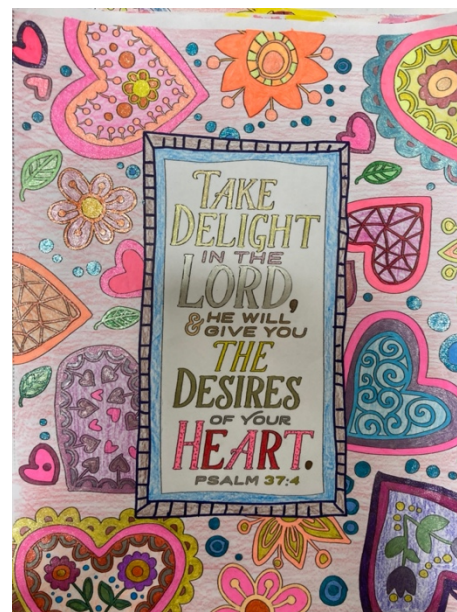 TAKE
DELIGHT
IN THE
LORD,
& HE WILL
GIVE YOU
THE
DESIRES
OF YOUR
HEART.
PSALM 37:4